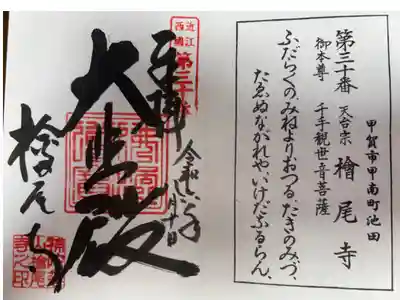 甲賀市甲南町池田
第三十番 天台宗 檜尾寺
御本尊 千手観世音菩薩
ふだらくのみねよりおつるたきのみづ、
たゑぬながれや、いけだなるらん、
近江
西國
第三十番
奉拝
令和
大悲殿
檜尾寺